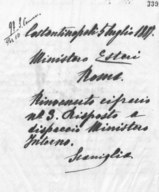 339
Constantinopoli 5 luglio 1887.
Ministero Esteri
Roma.
Rinnovato cifrario
n.º 3. Risposto a
dispaccio Ministero
Interno.